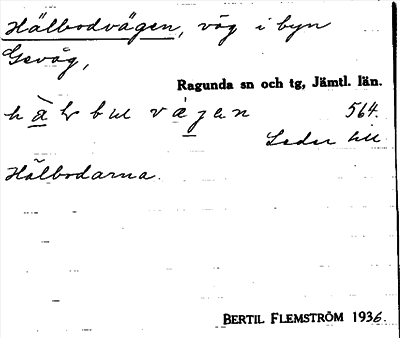 Hälbodvägen, väg i byn
Gevåg,
Ragunda sn och tg, Jämtl. län.
564.
Leder till
Hälbodarna.
BERTIL FLEMSTRÖM 1936.